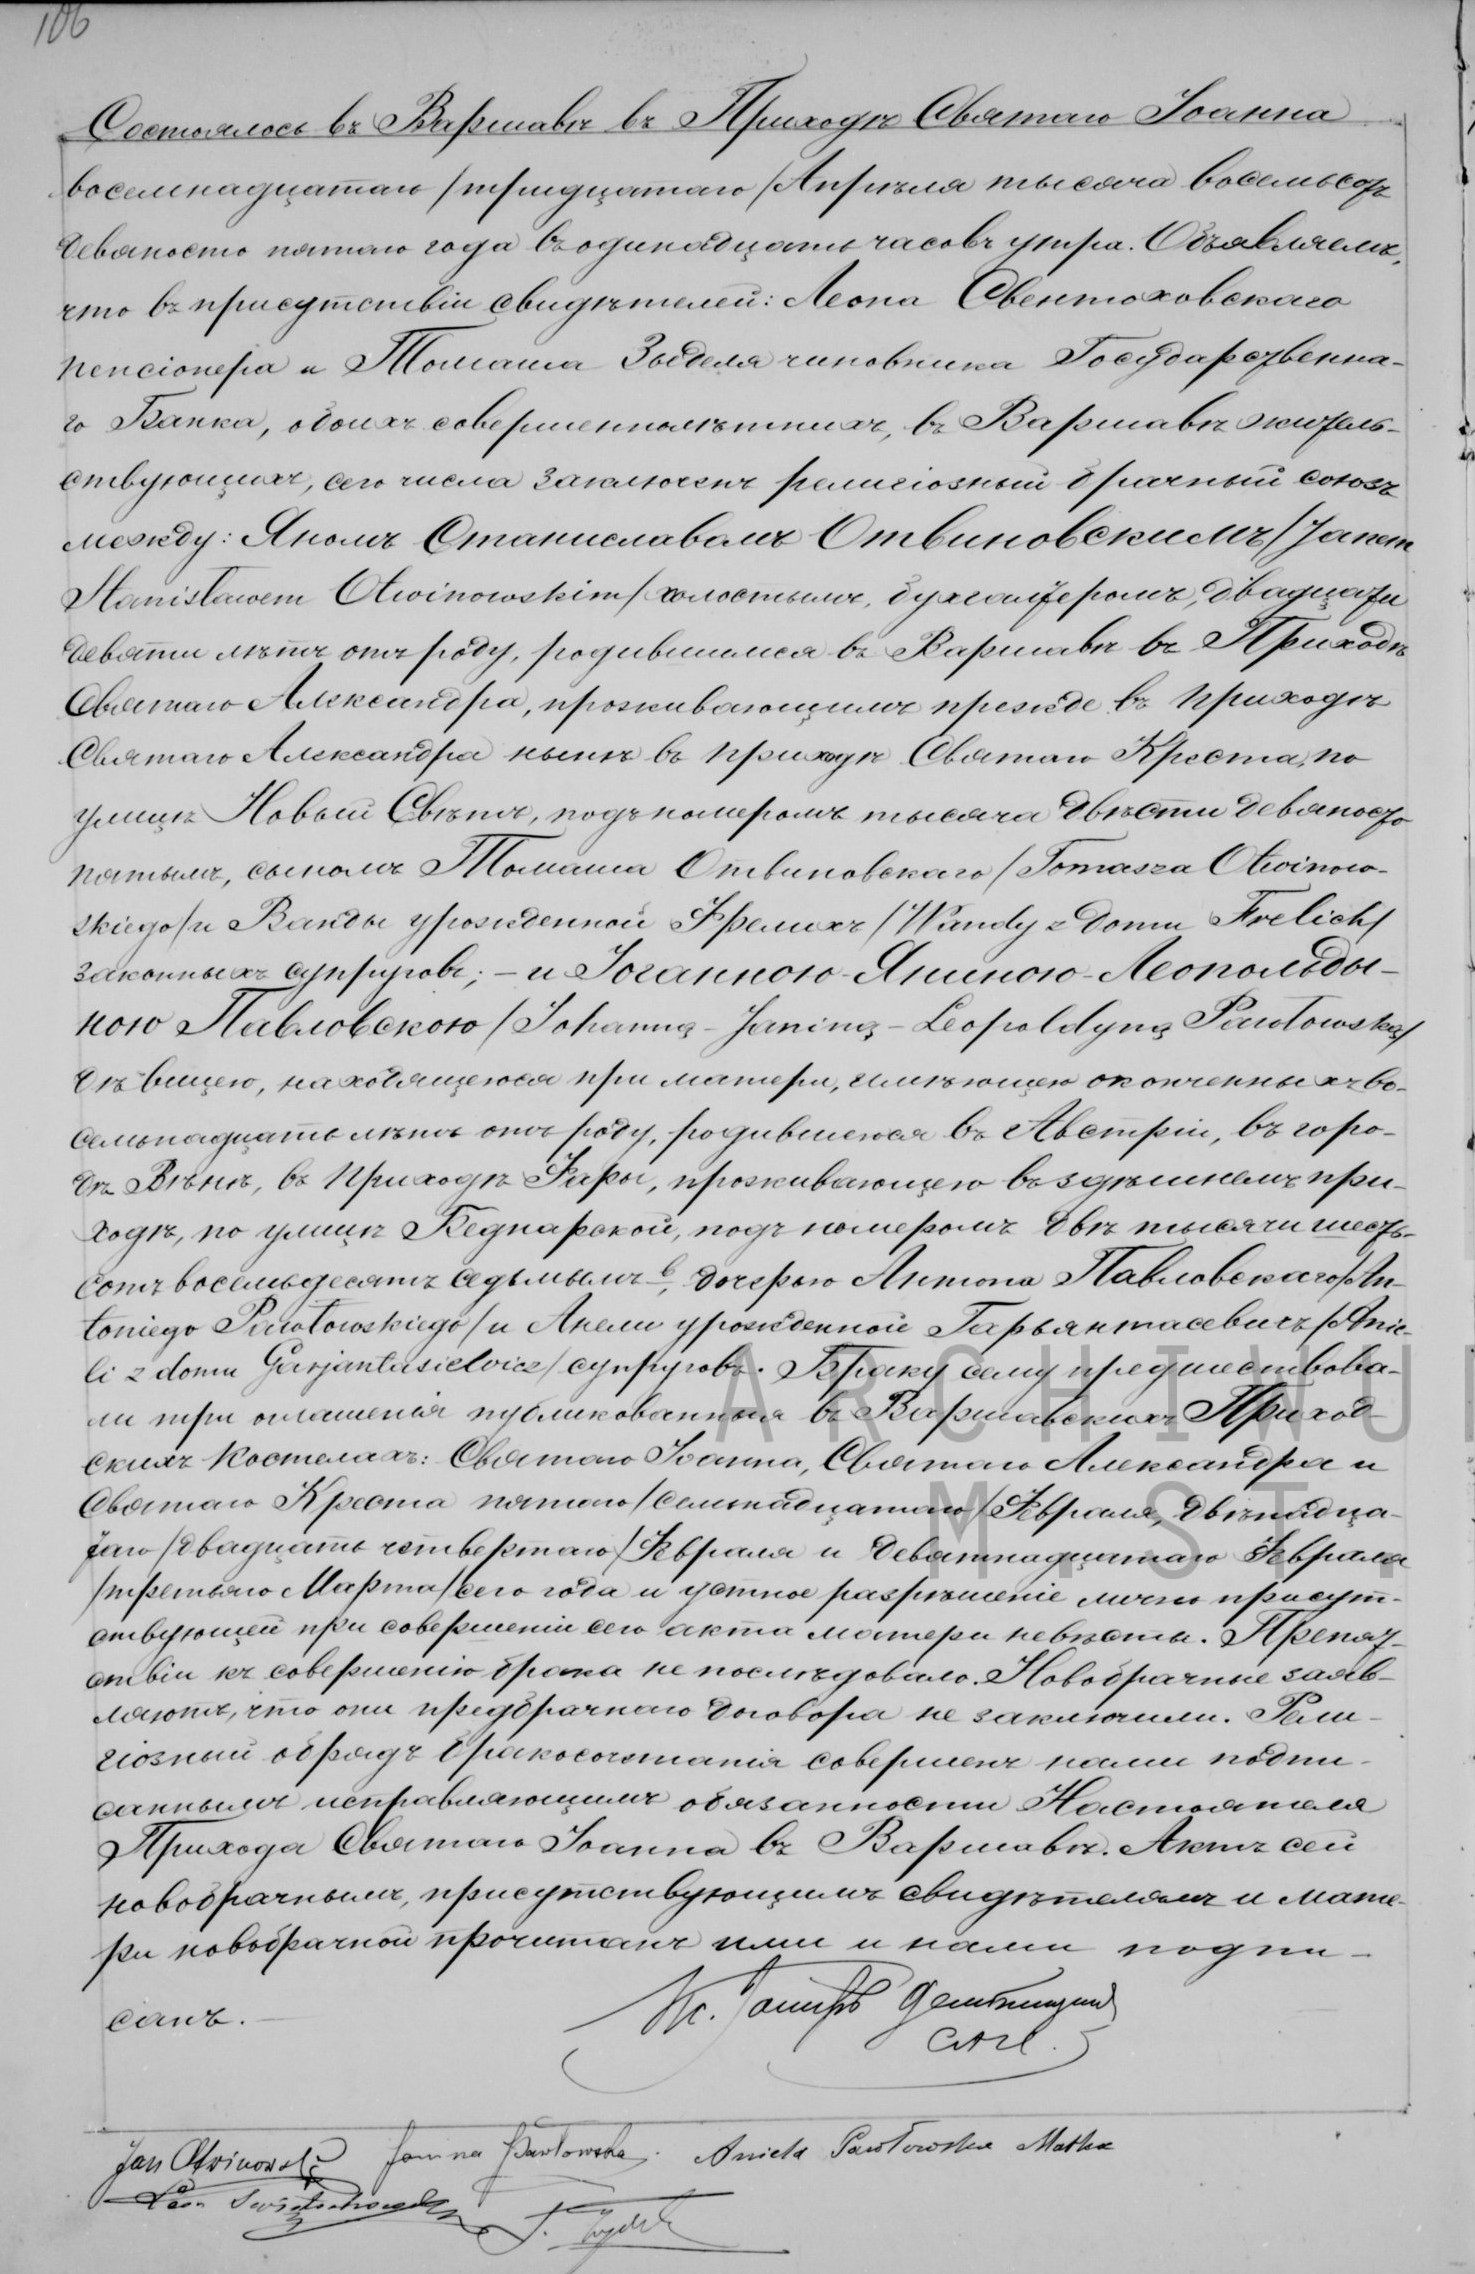 106
Состоялось въ Варшавѣ въ Приходѣ Святаго Іоанна
восемнадцатаго /тридцатаго/ Апрѣля тысяча восемьсотъ
девяносто пятаго года въ одинадцать часовъ утра. Объявляемъ,
что въ присутствіи свидѣтелей: Леона Свентоховскаго
пенсіонера и Томаша Зыделя чиновника Государственна-
го Банка, обоихъ совершеннолѣтнихъ, въ Варшавѣ житель-
ствующихъ, сего числа заключенъ религіозный брачный союзъ
между: Яномъ Станиславомъ Отвиновскимъ /Janem
Stanisławem Otwinowskim/ холостымъ, бухгалтеромъ, двадцати
девяти лѣтъ отъ роду, родившимся въ Варшавѣ въ Приходѣ
Святаго Александра, проживающимъ прежде въ приходѣ
Святаго Александра нынѣ въ приходѣ Святаго Креста, по
улицѣ Новый Свѣтъ, подъ номеромъ тысяча двѣсти девяносто
пятымъ, сыномъ Томаша Отвиновскаго /Tomasza Otwinow-
skiego/ и Ванды урожденной Фрелихъ /Wandy z domu Frelich/
законныхъ супруговъ; – и Іоганною-Яниною-Леопольды-
ною Павловскою /Johanną-Janiną-Leopoldyną Pawłowską/
дѣвицею, находящеюся при матери, имѣющею оконченныхъ во-
семьнадцать лѣтъ отъ роду, родившеюся въ Австріи, въ горо-
дѣ Вѣнѣ, въ Приходѣ Фары, проживающею въ здѣшнемъ при-
ходѣ, по улицѣ Беднарской, подъ номеромъ двѣ тысячи шесть-
сотъ восемьдесятъ седьмымъ в, дочерью Антона Павловскаго /An-
toniego Pawłowskiego/ и Анели урожденной Гарьянтасевичъ /Anie-
li z domu Garjantasiewicz/ супруговъ. Браку сему предшествова-
ли три оглашенія публикованныя въ Варшавскихъ Приход-
скихъ Костелахъ: Святаго Іоанна, Святаго Александра и
Святаго Креста пятаго /семнадцатаго/ Февраля, двѣнадца-
таго /двадцать четвертаго/ Февраля и девятнадцатаго Февраля
/третьяго Марта/ сего года и устное разрѣшеніе лично присут-
ствующей при совершеніи сего акта матери невѣсты. Препят-
ствіи къ совершенію брака не послѣдовало. Новобрачные заяв-
ляютъ, что они предбрачнаго договора не заключили. Рели-
гіозный обрядъ бракосочетанія совершенъ нами подпи-
саннымъ исправляющимъ обязанности Настоятеля
Прихода Святаго Іоанна въ Варшавѣ. Актъ сей
новобрачнымъ, присутствующимъ свидѣтелямъ и мате-
ри новобрачной прочитанъ ими и нами подпи-
санъ. –
Кс.
Jan Otwinowski Janina Pawłowska. Aniela Pawłowska Matka
Leon Świętochowski T. Zydel
ARCHIWU
M. ST.